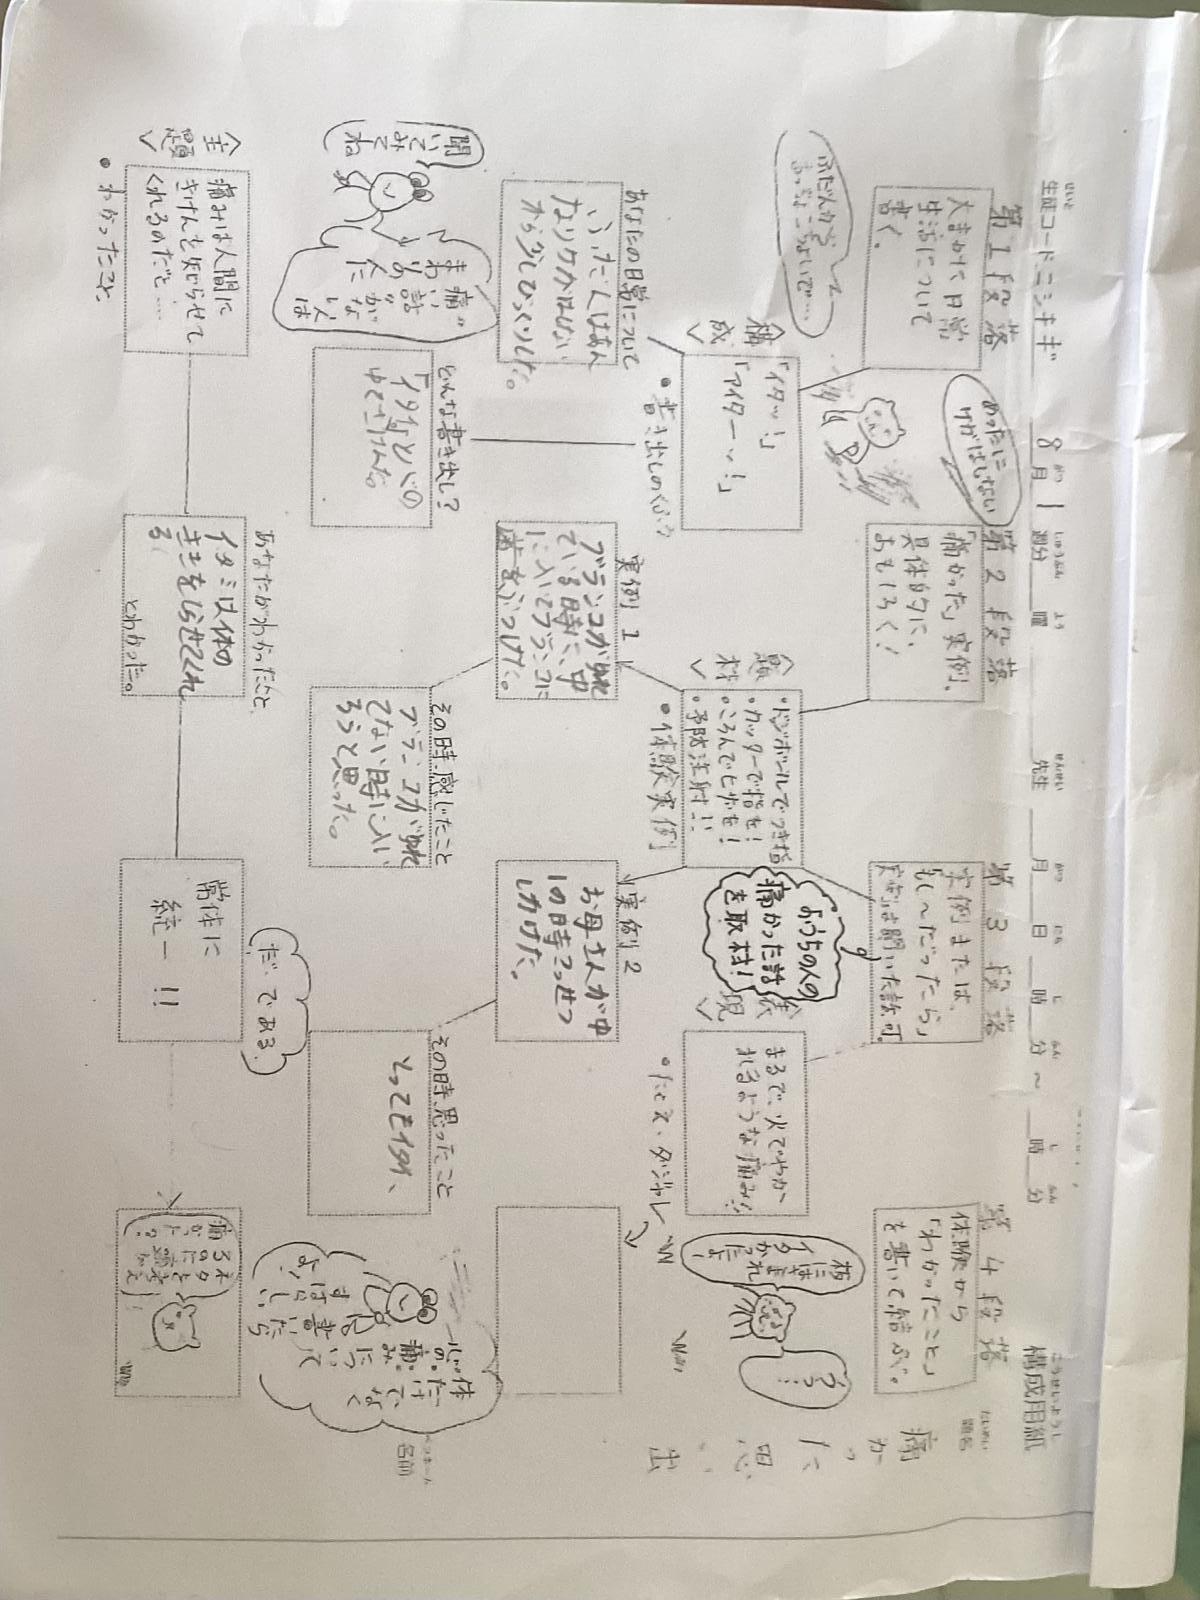 構成用紙
こうせいようし
生徒コード ニシキギ 8月 1 週分 曜 先生 月 日 時 分 ~ 時 分
題名
痛かった思い出
ペンネーム
名前
第1段落
大まかに日常
生活について
書く。
第2段落
「痛かった」実例。
具体的に、
おもしろく!
めったに
けがはしない
第3段落
実例または、
「もし~だったら」
実例は聞いた話許可。
第4段落
体験から
「わかったこと」
を書いて結ぶ。
〈構成〉
「イタッ!」
「アイターッ!」
• 書き出しのくふう
〈題材〉
・ドッジボールでつき指
・カッターで指を!
・ころんでヒザを!
・予防注射!!
• 体験実例
おうちの人の
痛かった話
を取材!
〈表現〉
まるで、火でやか
れるような痛み!!
• たとえ・ダジャレ
あなたの日常について
ふだんはあん
なりケガはしない
から少しびっくりした。
実例1
ブランコが揺れ
ている時に、中
に入ってブランコに
歯をぶつけた。
実例2
お母さんが中
1の時こっせつ
しかけた。
聞いてみてね
痛い話がない人は
まわりの人に
どんな書き出し?
「イタイ」などの
その時、感じたこと
ブランコが揺れ
てない時に入
ろうと思った。
その時、思ったこと
とってもイタイ、
体だけでなく
心の痛みについて
書いたら
すばらしい
よ!
〈主題〉
痛みは人間に
きけんを知らせて
くれるのだと…
• わかったこと
あなたがわかったこと
イタミは体の
キキをしらせてくれ
る
とわかった。
常体に
統一!!
だ・である